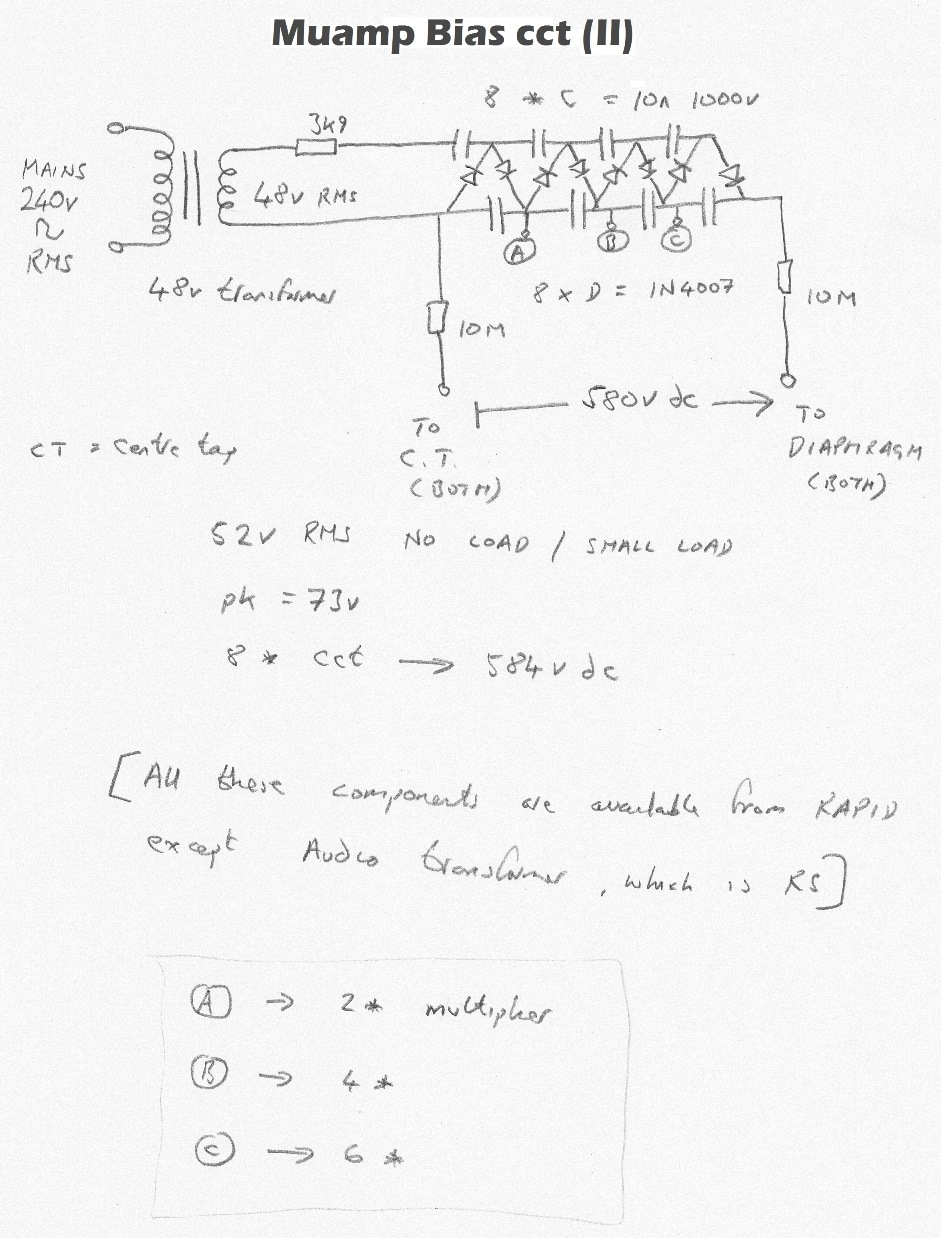 Muamp Bias cct (II)
8 * C = 10n 1000v
3k9
MAINS
240v
RMS
48v RMS
48v transformer
A
B
C
8 x D = 1N4007
10M
10M
580v dc
TO
C.T.
(BOTH)
TO
DIAPHRAGM
(BOTH)
CT = centre tap
52v RMS NO LOAD / SMALL LOAD
pk = 73v
8 * cct → 584v dc
[All these components are available from RAPID
except Audio transformer, which is RS]
A → 2* multiplier
B → 4*
C → 6*